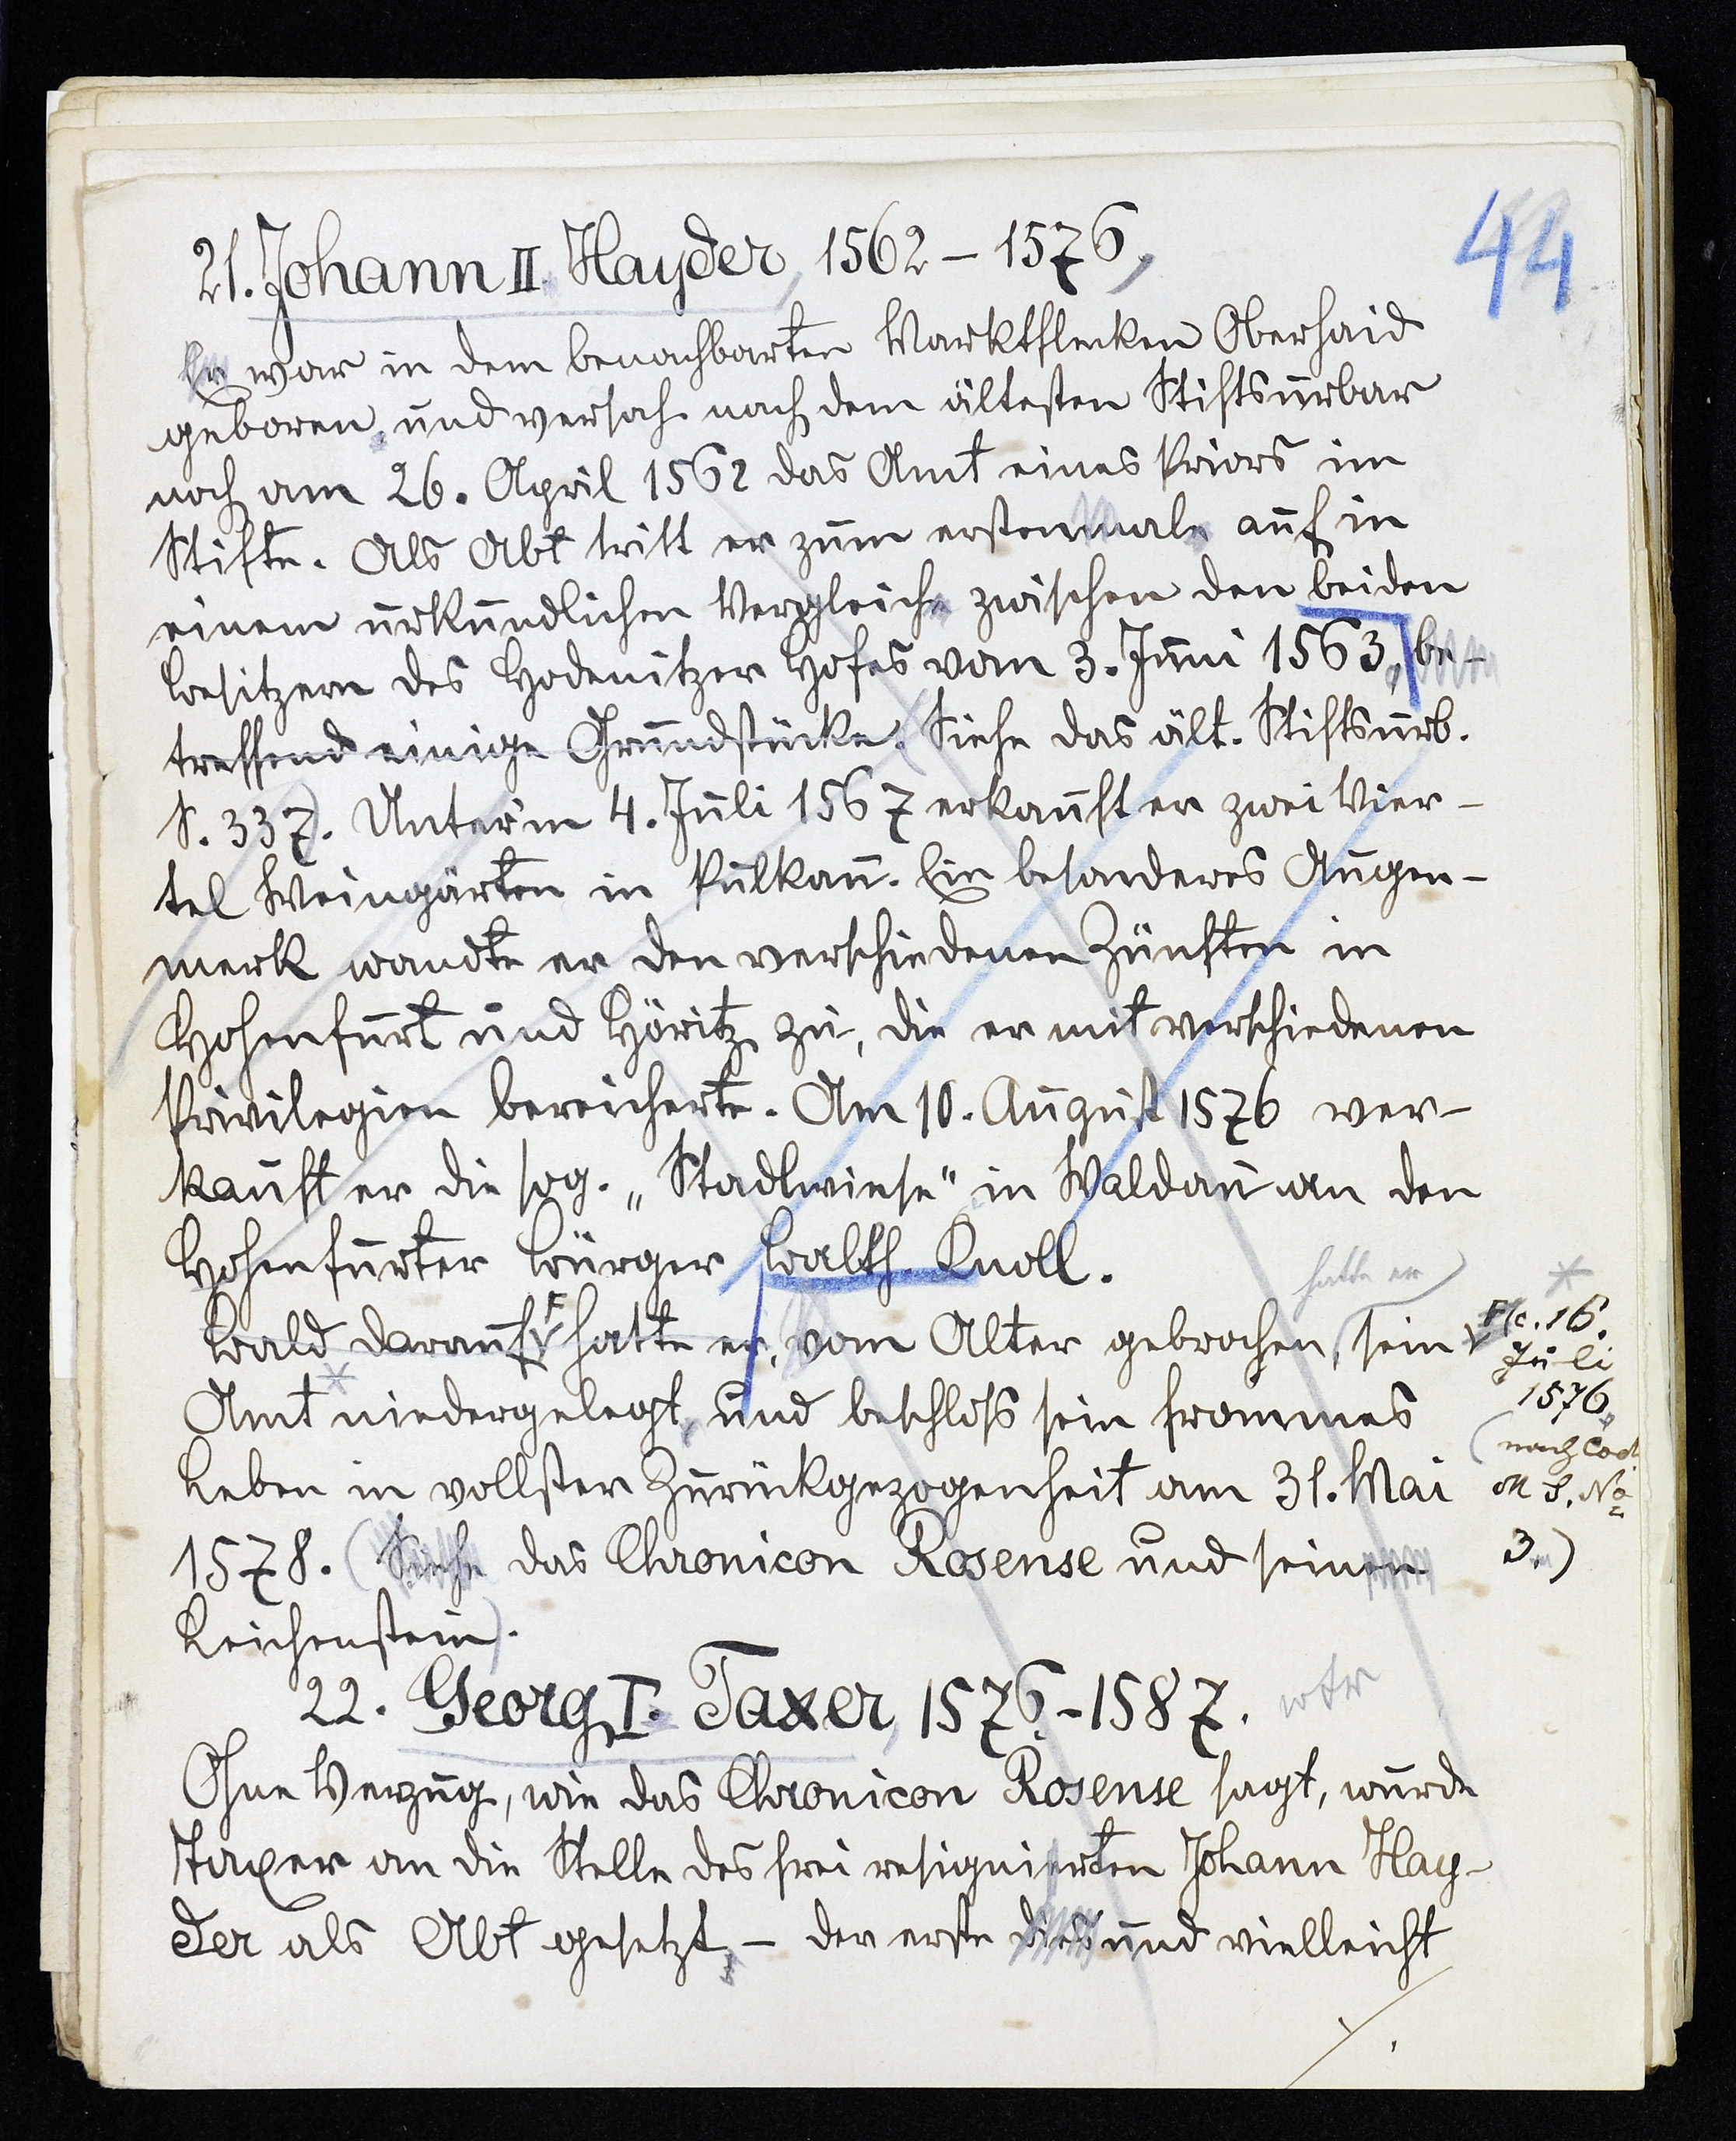 44
21. Johann II. Hayder, 1562 – 1576,
Er war in dem benachbarten Marktflecken Oberhaid
geboren, und versah nach dem ältesten Stiftsurbar
noch am 26. April 1562 das Amt eines Priors im
Stifte. Als Abt tritt er zum erstenmale auf in
einem urkundlichen Vergleiche zwischen den beiden
Besitzern des Hodenitzer Hofes vom 3. Juni 1563, be-
treffend einige Grundstücke. (Siehe das ält. Stiftsurb.
S. 337). Unter'm 4. Juli 1567 erkauft er zwei Vier-
tel Weingärten in Pulkau. Ein besonderes Augen-
merk wandte er den verschiedenen Zünften in
Hohenfurt und Höritz zu, die er mit verschiedenen
Privilegien bereicherte. Am 10. August 1576 ver-
kauft er die sog. „Stadlwiese" in Waldau an den
Hohenfurter Bürger Balth. Knoll.
hatte er
Bald darauf hatte er, vom Alter gebrochen, sein
Amt niedergelegt, und beschloß sein frommes
Leben in vollster Zurückgezogenheit am 31. Mai
1578. (Siehe das Chronicon Rosense und seinen
Leichenstein).
F (c. 16.
Juli
1576,
(nach Cod.
MS. No
3.)
22. Georg I. Taxer, 1576.-1587.
Ohne Verzug, wie das Chronicon Rosense sagt, wurde
Taxer an die Stelle des frei resignierten Johann Hay-
der als Abt gesetzt, – der erste dies und vielleicht
./.